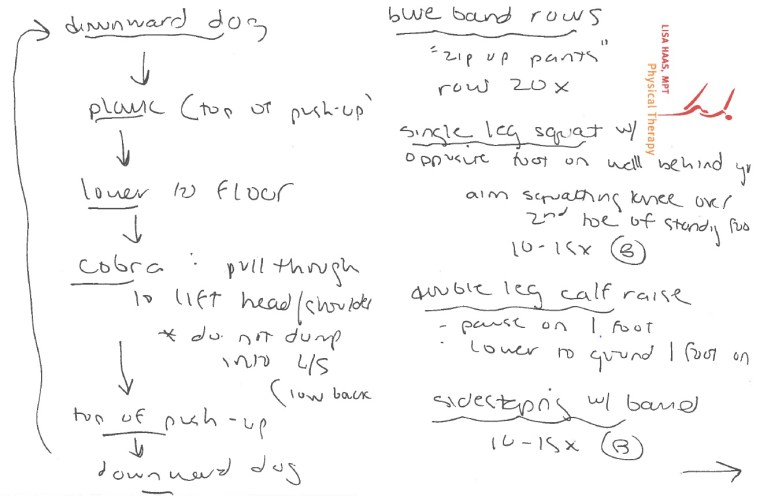 downward dog
plank (top of push-up)
lower to floor
cobra : pull through
to lift head/shoulder
* do not dump
into L/S
(low back
top of push-up
downward dog
blue band rows
"zip up pants"
row 20x
LISA HAAS, MPT
Physical Therapy
single leg squat w/
opposite foot on wall behind
aim squatting knee over
2nd toe of standing foo
10-15x (B)
double leg calf raise
- pause on 1 foot
: lower to ground 1 foot on
sidestepping w/ band
10-15x (B)